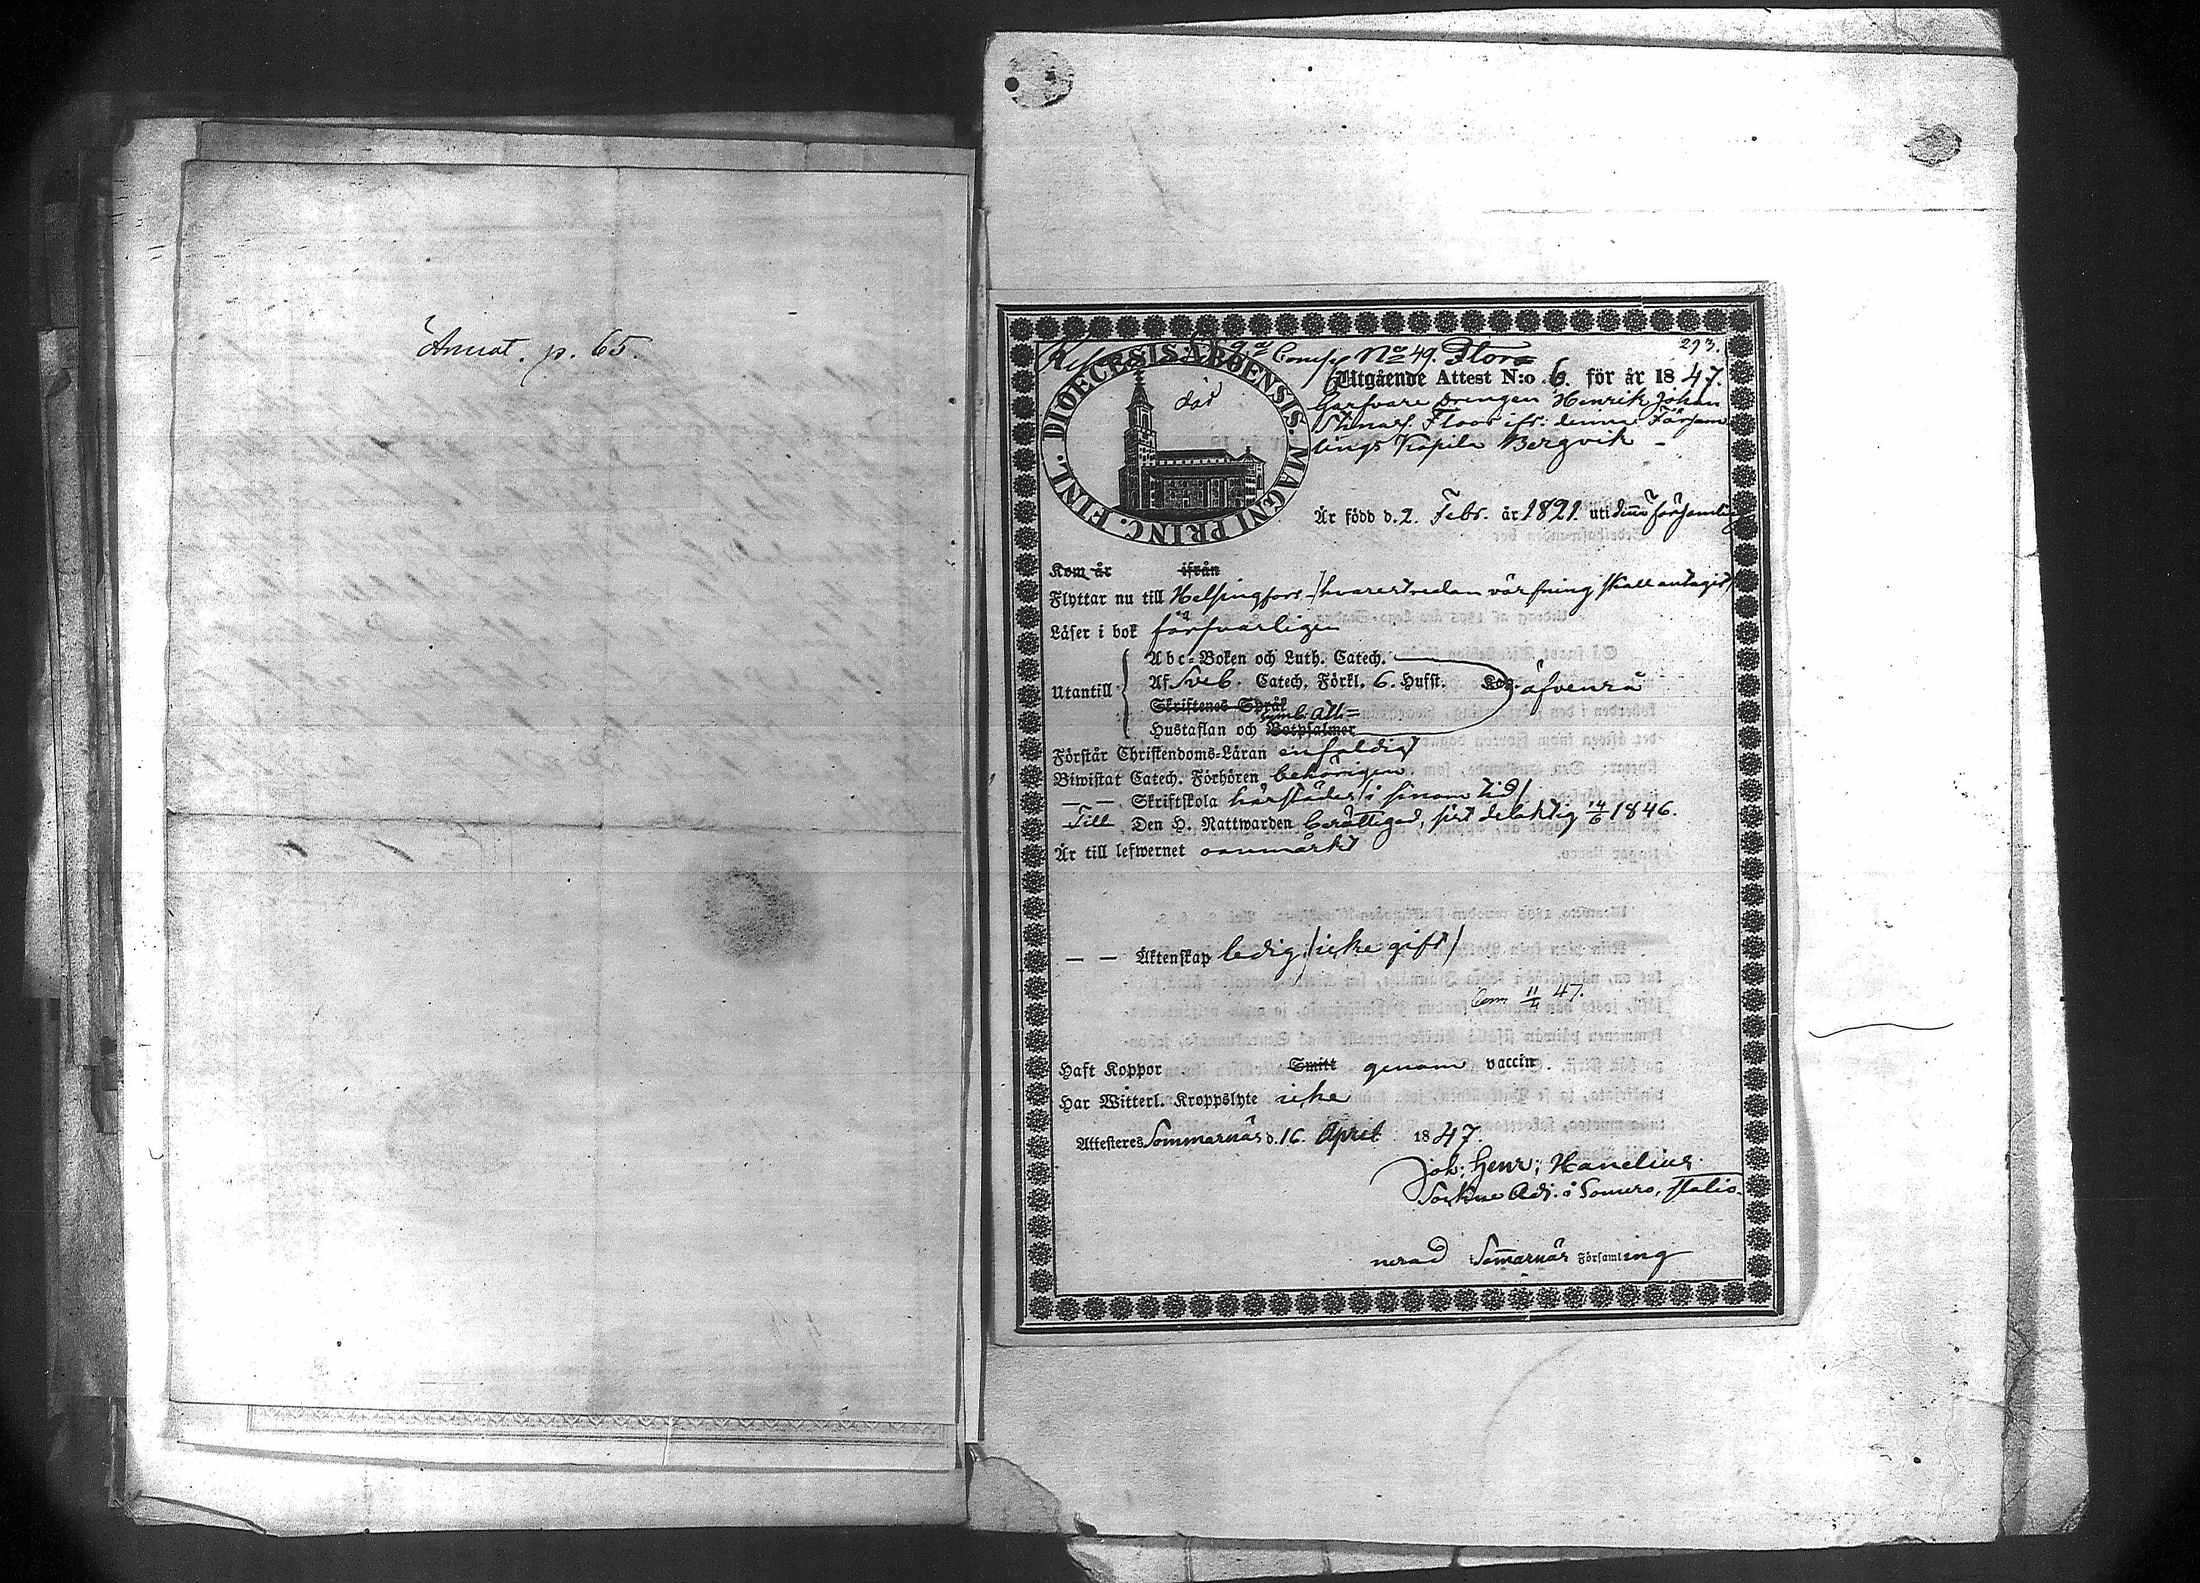 Annat. p. 65.
293.
Comp No 49. Flora
DIOECESIS ABOENSIS. MAGNI PRINC. FINL.
död
Utgående Attest N:o 6. för år 1847.
Garfvare Drengen Henrik Johan
Floor ifr: denna Försam
lings Kapila Bergvik –
Är född d. 2. Febr. år 1821. uti denna församling
Kom år ifrån
Flyttar nu till Helsingfors /hvarest redan värfning skall antagit/
Läser i bok försvarligen
Utantill
Abc-Boken och Luth. Catech.
Af Sveb. Catech. Förkl. 6. Hufst. Kap. äfvenså
Skriftenes Språk
Symb. Ath=
Hustaflan och Botpsalmer
Förstår Christendoms-Läran enfaldigt
Biwistat Catech. Förhören behörigen
— — Skriftskola härstädes /i sinom tid/
Till Den H. Nattwarden berättigad, sist delaktig 14/6 1846.
Är till lefwernet oanmärkt
— — Äktenskap ledig /icke gift/
11/4 47.
Haft Koppor Smitt genom vaccin
Har Witterl. Kroppslyte icke
Attesteres Sommarnäs d. 16. April 1847.
Joh: Henr: Hanelius
Sockne Adj. i Somero, statio-
nerad i Sommarnäs Församling